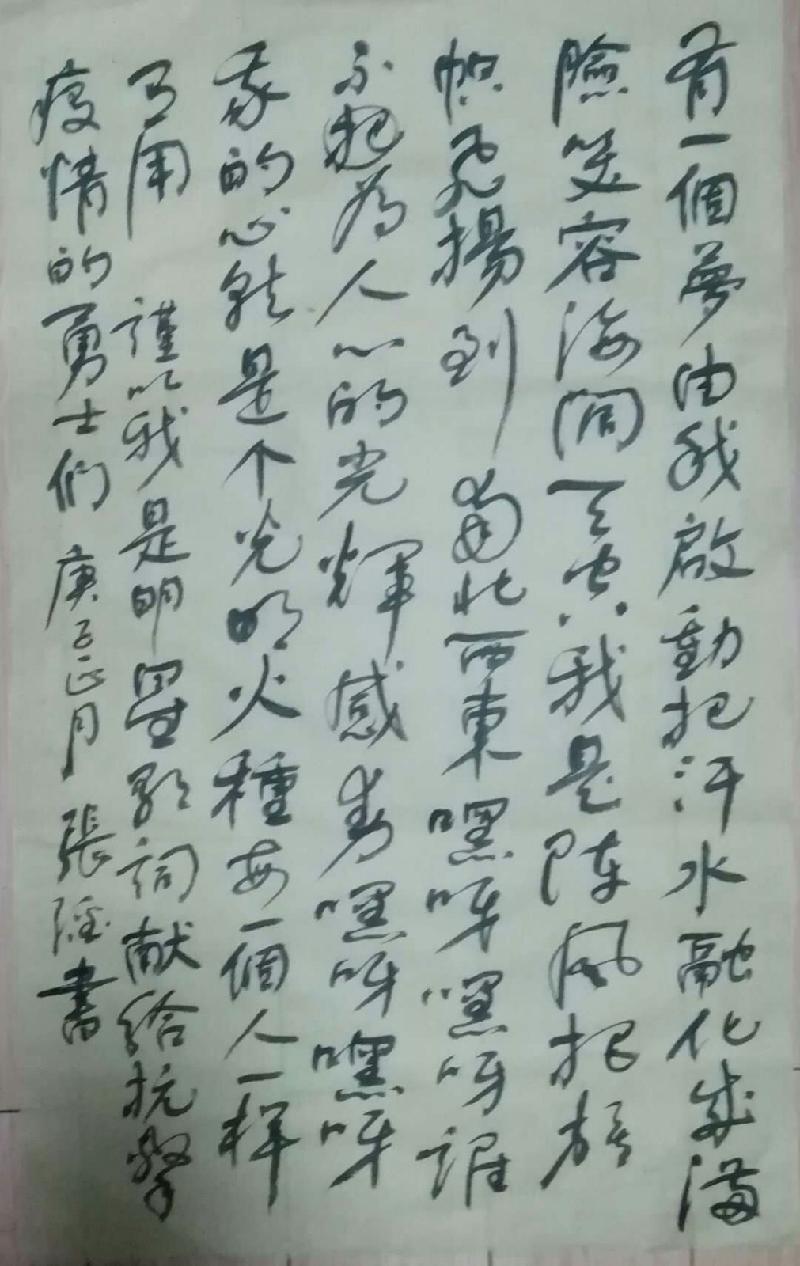 有一個夢由我啟動把汗水融化成滿
臉笑容海闊天空我是陣風把旗
幟飛揚到南北西東嘿呀嘿呀誰
不把為人心的光輝感動嘿呀嘿呀
我的心就是个光明火種每一個人一样
有用 謹以我是明星歌詞献給抗擊
疫情的勇士們 庚子正月 張 書